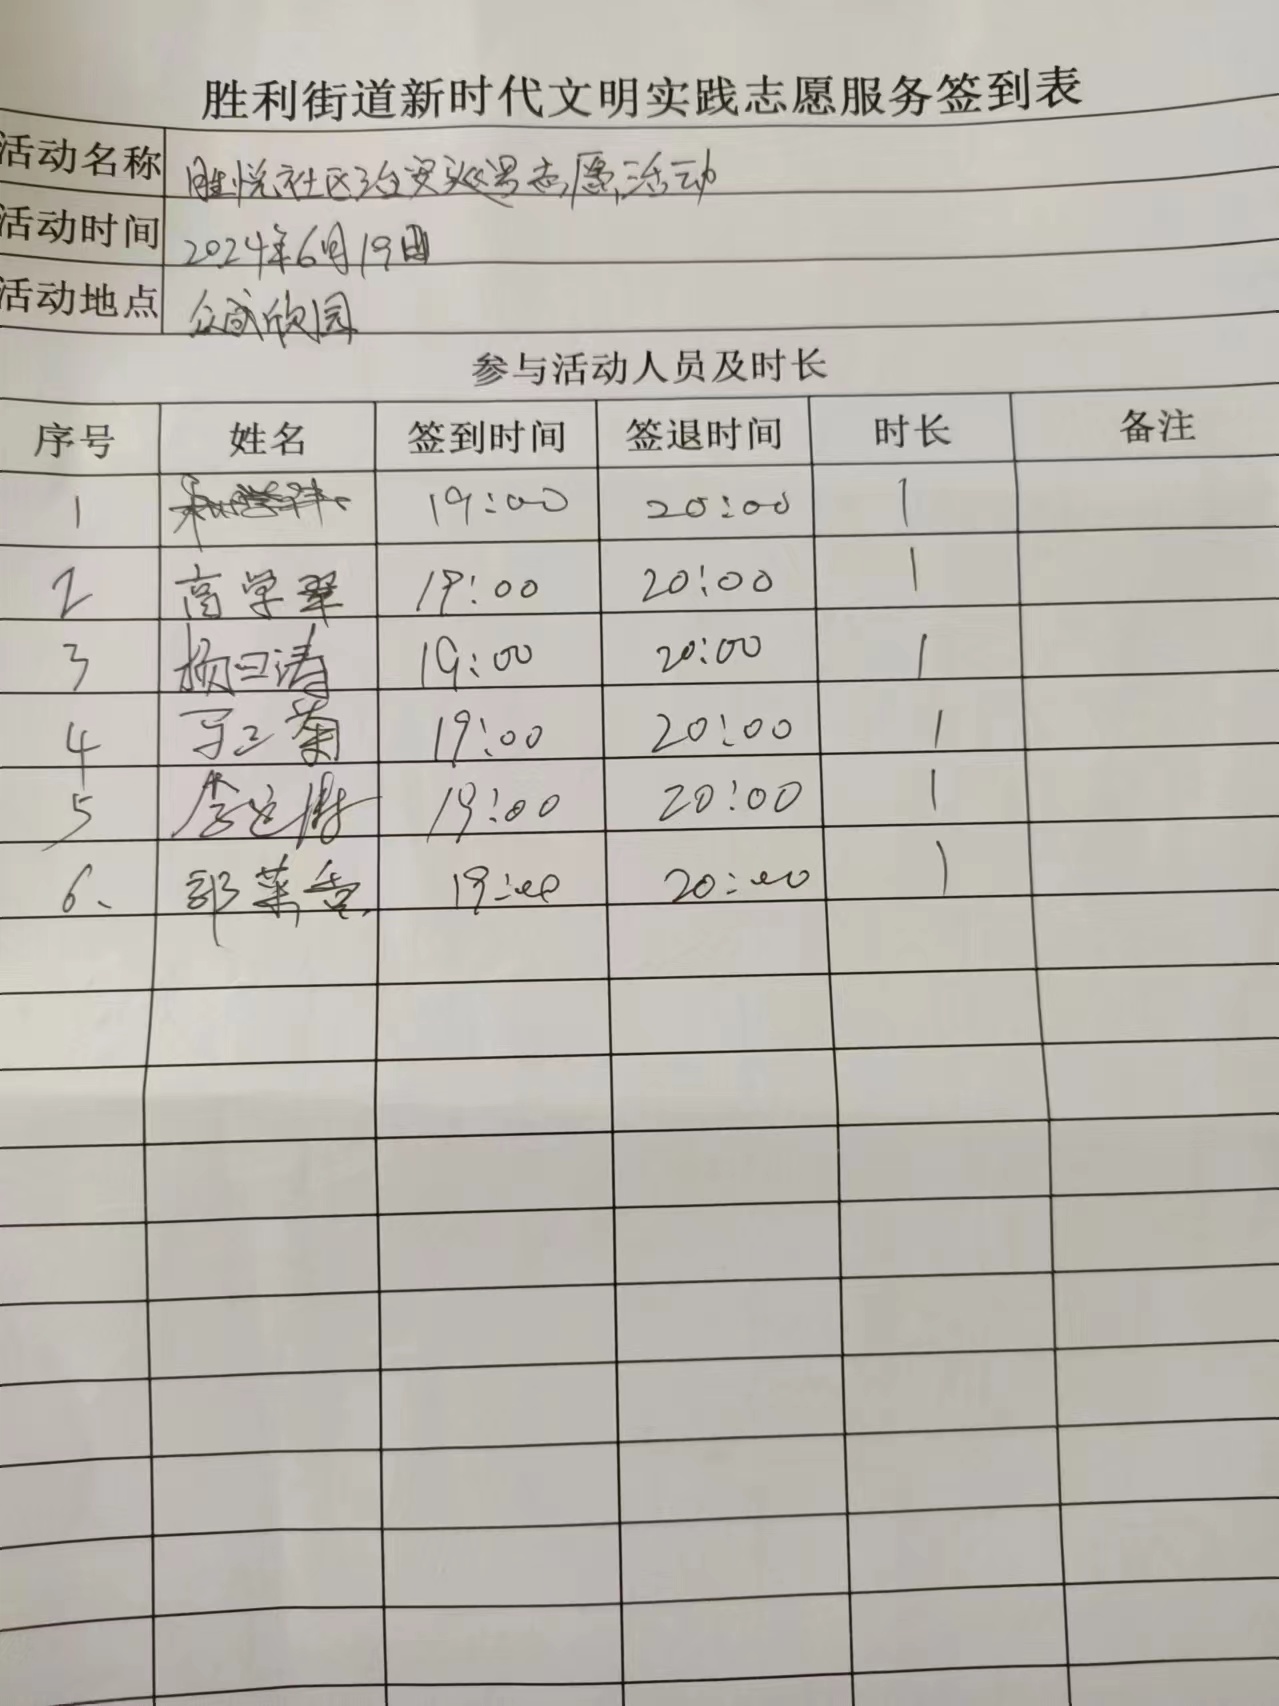 胜利街道新时代文明实践志愿服务签到表
活动名称 胜悦社区治安巡逻志愿活动
活动时间 2024年6月19日
活动地点 众成欣园
参与活动人员及时长
序号 姓名 签到时间 签退时间 时长 备注
1 19:00 20:00 1
2 高学翠 19:00 20:00 1
3 杨曰涛 19:00 20:00 1
4 菊 19:00 20:00 1
5 李 19:00 20:00 1
6、 郭菜香 19:00 20:00 1